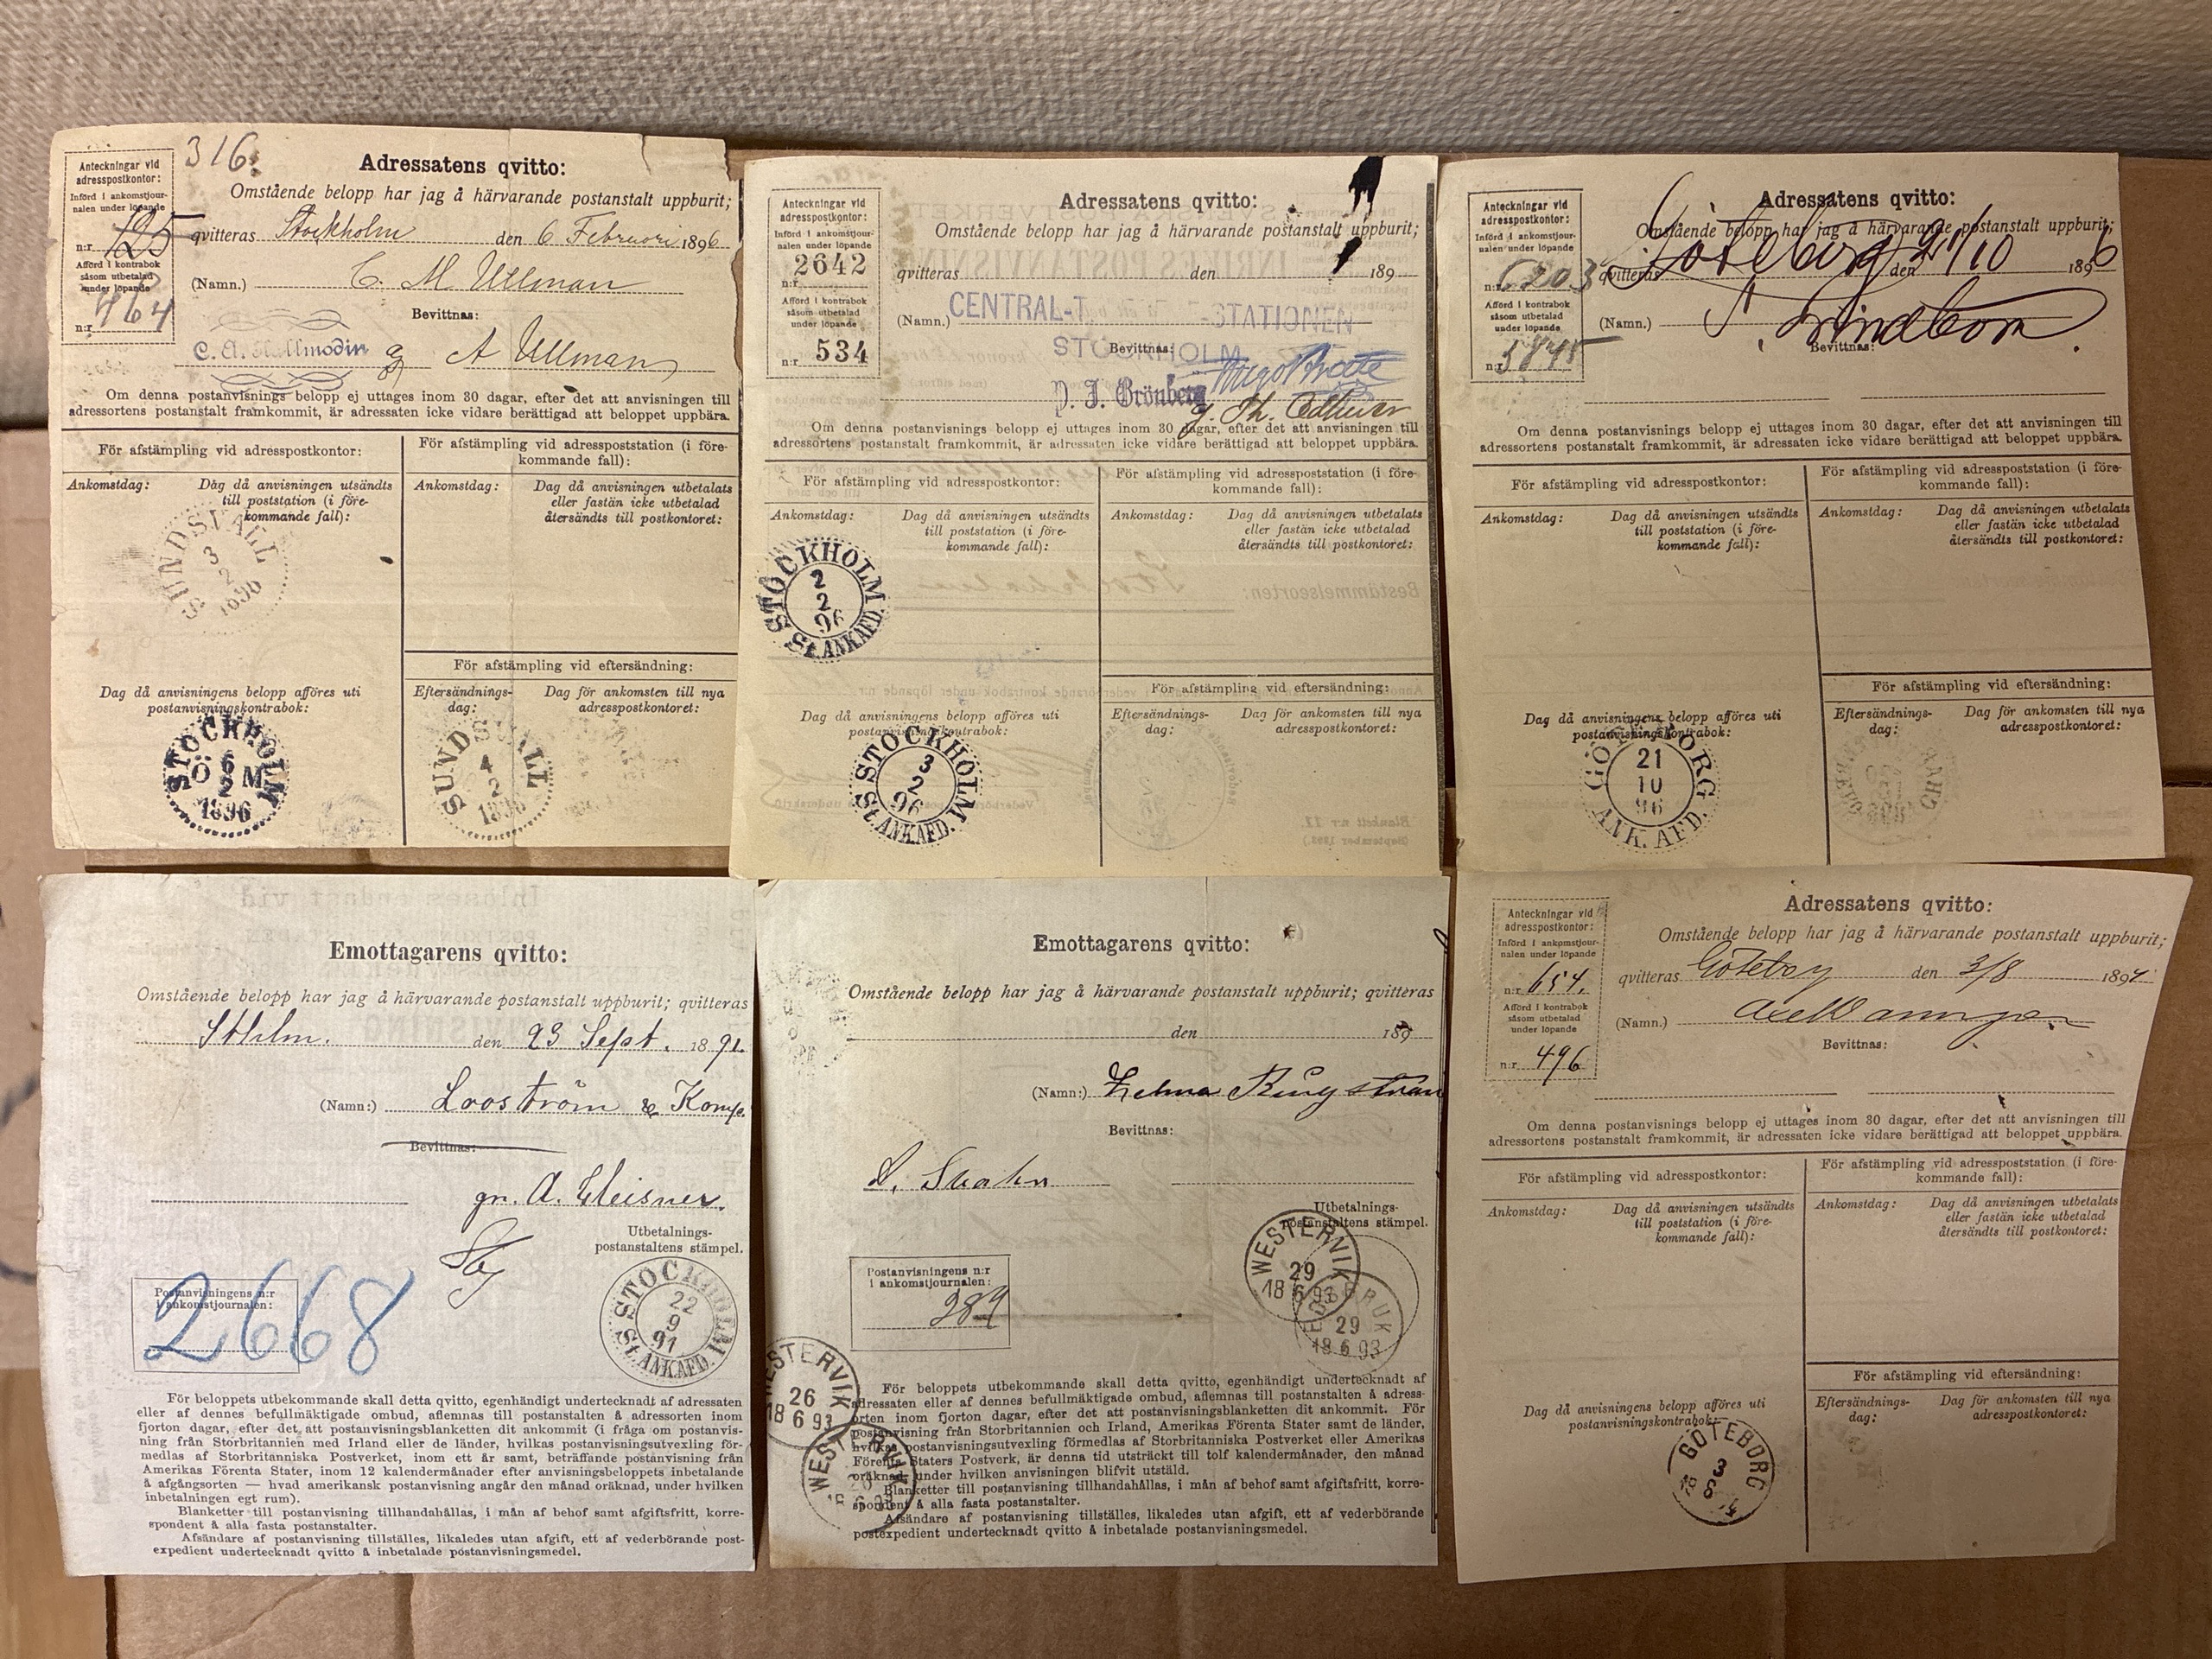 316.
Anteckningar vid
adresspostkontor:
Införd i ankomstjour-
nalen under löpande
n:r 125
Afförd i kontrabok
såsom utbetalad
under löpande
n:r 464
Adressatens qvitto:
Omstående belopp har jag å härvarande postanstalt uppburit;
qvitteras Stockholm den 6 Februari 1896
(Namn.) C. M. Ullman
Bevittnas:
A Ullman
Om denna postanvisnings belopp ej uttages inom 30 dagar, efter det att anvisningen till
adressortens postanstalt framkommit, är adressaten icke vidare berättigad att beloppet uppbära.
För afstämpling vid adresspostkontor:
Ankomstdag:
Dag då anvisningen utsändts
till poststation (i före-
kommande fall):
SUNDSVALL
3
2
1896
Dag då anvisningens belopp afföres uti
postanvisningskontrabok:
STOCKHOLM
6
Ö M
2
1896
För afstämpling vid adresspoststation (i före-
kommande fall):
Ankomstdag:
Dag då anvisningen utbetalats
eller fastän icke utbetalad
återsändts till postkontoret:
För afstämpling vid eftersändning:
Eftersändnings-
dag:
Dag för ankomsten till nya
adresspostkontoret:
SUNDSVALL
4
2
1896
Anteckningar vid
adresspostkontor:
Införd i ankomstjour-
nalen under löpande
2642
n:r
Afförd i kontrabok
såsom utbetalad
under löpande
n:r 534
Adressatens qvitto:
Omstående belopp har jag å härvarande postanstalt uppburit;
qvitteras den 189
(Namn.) CENTRAL-T -STATIONEN
STOCKHOLM
Bevittnas:
Grönberg
Om denna postanvisnings belopp ej uttages inom 30 dagar, efter det att anvisningen till
adressortens postanstalt framkommit, är adressaten icke vidare berättigad att beloppet uppbära.
För afstämpling vid adresspostkontor:
Ankomstdag:
Dag då anvisningen utsändts
till poststation (i före-
kommande fall):
STOCKHOLM
2
2
96
St. ANK.AFD.
Dag då anvisningens belopp afföres uti
postanvisningskontrabok:
STOCKHOLM
3
2
96
St. ANK.AFD.
För afstämpling vid adresspoststation (i före-
kommande fall):
Ankomstdag:
Dag då anvisningen utbetalats
eller fastän icke utbetalad
återsändts till postkontoret:
För afstämpling vid eftersändning:
Eftersändnings-
dag:
Dag för ankomsten till nya
adresspostkontoret:
Anteckningar vid
adresspostkontor:
Införd i ankomstjour-
nalen under löpande
n:r 6203
Afförd i kontrabok
såsom utbetalad
under löpande
n:r 5845
Adressatens qvitto:
Omstående belopp har jag å härvarande postanstalt uppburit;
qvitteras Göteborg den 21/10 1896
(Namn.) Lindbom
Bevittnas:
Om denna postanvisnings belopp ej uttages inom 30 dagar, efter det att anvisningen till
adressortens postanstalt framkommit, är adressaten icke vidare berättigad att beloppet uppbära.
För afstämpling vid adresspostkontor:
Ankomstdag:
Dag då anvisningen utsändts
till poststation (i före-
kommande fall):
Dag då anvisningens belopp afföres uti
postanvisningskontrabok:
GÖTEBORG
21
10
96
ANK. AFD.
För afstämpling vid adresspoststation (i före-
kommande fall):
Ankomstdag:
Dag då anvisningen utbetalats
eller fastän icke utbetalad
återsändts till postkontoret:
För afstämpling vid eftersändning:
Eftersändnings-
dag:
Dag för ankomsten till nya
adresspostkontoret:
Emottagarens qvitto:
Omstående belopp har jag å härvarande postanstalt uppburit; qvitteras
Sthlm. den 23 Sept. 1891.
(Namn:) Looström & Komp.
Bevittnas:
gn. A. Gleisner.
Utbetalnings-
postanstaltens stämpel.
STOCKHOLM
22
9
91
St. ANK.AFD.
Postanvisningens n:r
i ankomstjournalen:
2668
För beloppets utbekommande skall detta qvitto, egenhändigt undertecknadt af adressaten
eller af dennes befullmäktigade ombud, aflemnas till postanstalten å adressorten inom
fjorton dagar, efter det att postanvisningsblanketten dit ankommit (i fråga om postanvis-
ning från Storbritannien med Irland eller de länder, hvilkas postanvisningsutvexling för-
medlas af Storbritanniska Postverket, inom ett år samt, beträffande postanvisning från
Amerikas Förenta Stater, inom 12 kalendermånader efter anvisningsbeloppets inbetalande
å afgångsorten — hvad amerikansk postanvisning angår den månad oräknad, under hvilken
inbetalningen egt rum).
Blanketter till postanvisning tillhandahållas, i mån af behof samt afgiftsfritt, korre-
spondent å alla fasta postanstalter.
Afsändare af postanvisning tillställes, likaledes utan afgift, ett af vederbörande post-
expedient undertecknadt qvitto å inbetalade postanvisningsmedel.
Emottagarens qvitto:
Omstående belopp har jag å härvarande postanstalt uppburit; qvitteras
den 189
(Namn:) Zelma Ringstrån
Bevittnas:
Utbetalnings-
postanstaltens stämpel.
WESTERVIK
29
18 6 93
29
18 6 93
Postanvisningens n:r
i ankomstjournalen:
289
WESTERVIK
26
18 6 93
WESTERVIK
26
18 6 93
För beloppets utbekommande skall detta qvitto, egenhändigt undertecknadt af
adressaten eller af dennes befullmäktigade ombud, aflemnas till postanstalten å adress-
orten inom fjorton dagar, efter det att postanvisningsblanketten dit ankommit. För
postanvisning från Storbritannien och Irland, Amerikas Förenta Stater samt de länder,
hvilkas postanvisningsutvexling förmedlas af Storbritanniska Postverket eller Amerikas
Förenta Staters Postverk, är denna tid utsträckt till tolf kalendermånader, den månad
oräknad, under hvilken anvisningen blifvit utstäld.
Blanketter till postanvisning tillhandahållas, i mån af behof samt afgiftsfritt, korre-
spondent å alla fasta postanstalter.
Afsändare af postanvisning tillställes, likaledes utan afgift, ett af vederbörande
postexpedient undertecknadt qvitto å inbetalade postanvisningsmedel.
Anteckningar vid
adresspostkontor:
Införd i ankomstjour-
nalen under löpande
n:r 654.
Afförd i kontrabok
såsom utbetalad
under löpande
n:r 496
Adressatens qvitto:
Omstående belopp har jag å härvarande postanstalt uppburit;
qvitteras Göteborg den 3/8 1894
(Namn.) Axel
Bevittnas:
Om denna postanvisnings belopp ej uttages inom 30 dagar, efter det att anvisningen till
adressortens postanstalt framkommit, är adressaten icke vidare berättigad att beloppet uppbära.
För afstämpling vid adresspostkontor:
Ankomstdag:
Dag då anvisningen utsändts
till poststation (i före-
kommande fall):
Dag då anvisningens belopp afföres uti
postanvisningskontrabok:
GÖTEBORG
3
8
För afstämpling vid adresspoststation (i före-
kommande fall):
Ankomstdag:
Dag då anvisningen utbetalats
eller fastän icke utbetalad
återsändts till postkontoret:
För afstämpling vid eftersändning:
Eftersändnings-
dag:
Dag för ankomsten till nya
adresspostkontoret: